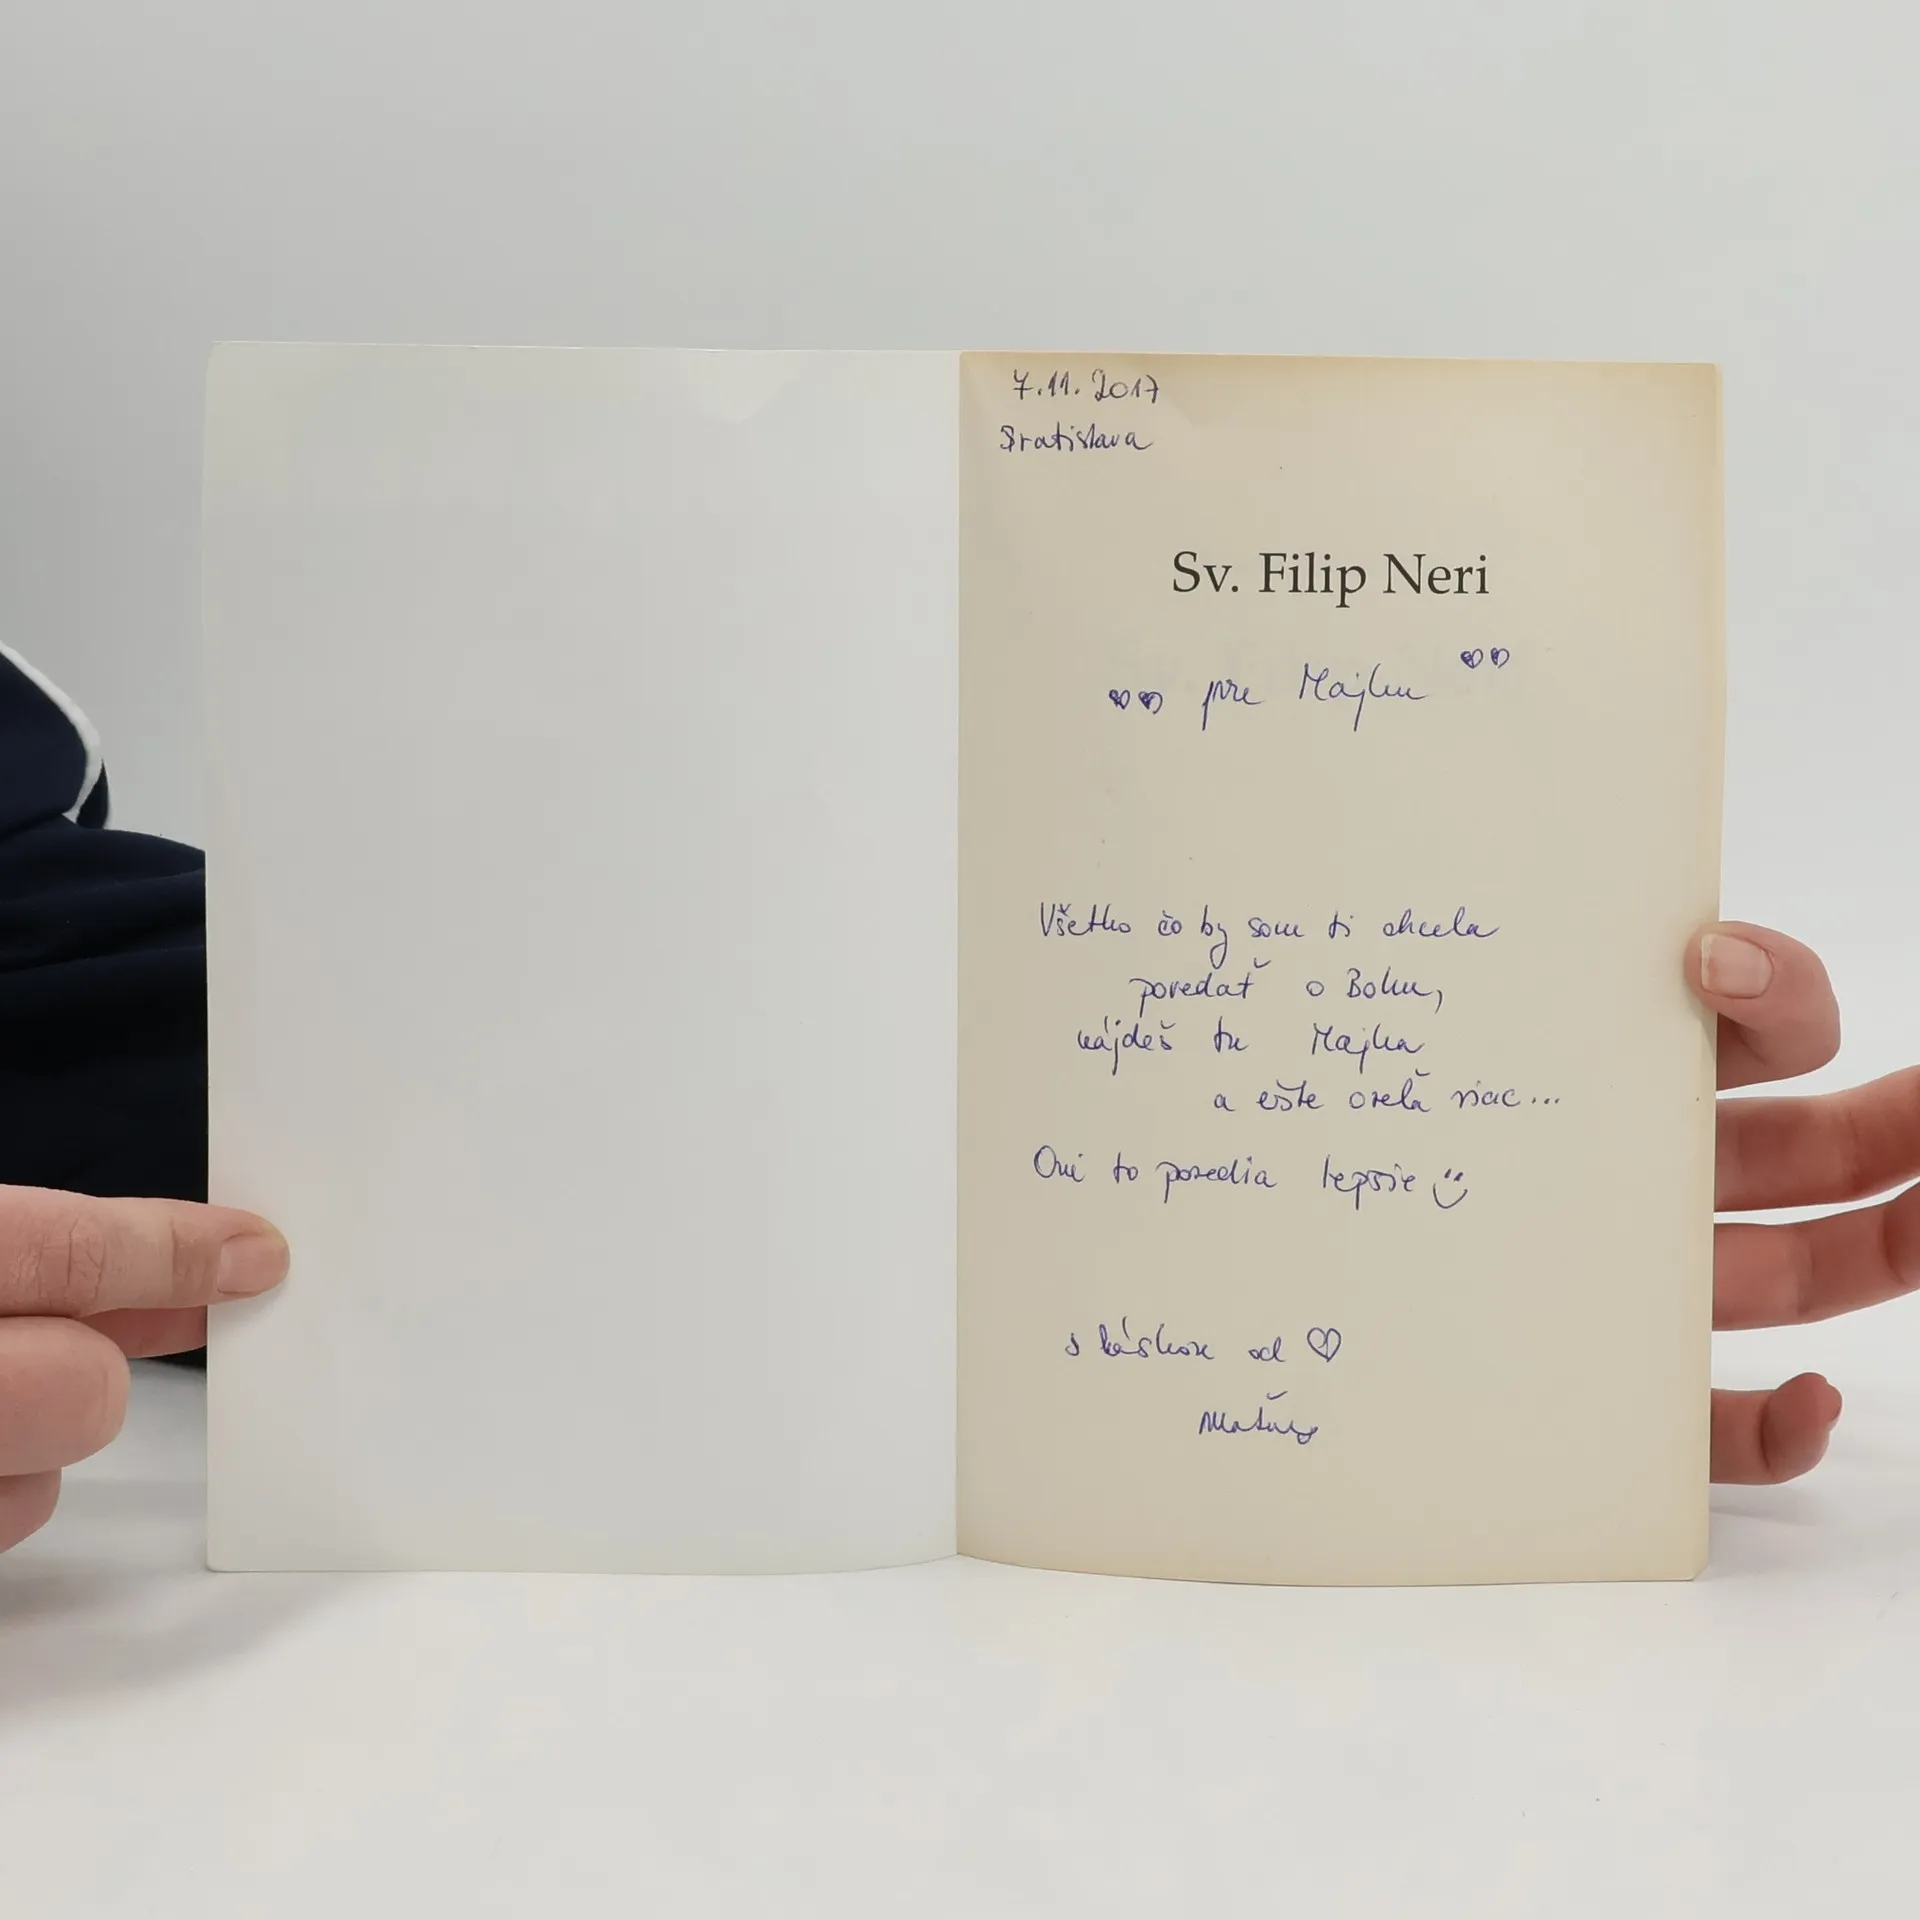 7.11.2017
Bratislava
Sv. Filip Neri
pre Majku
Všetko čo by som ti chcela
povedať o Bohu,
nájdeš tu Majka
a ešte oveľa viac...
Oni to povedia lepšie
s láskou od